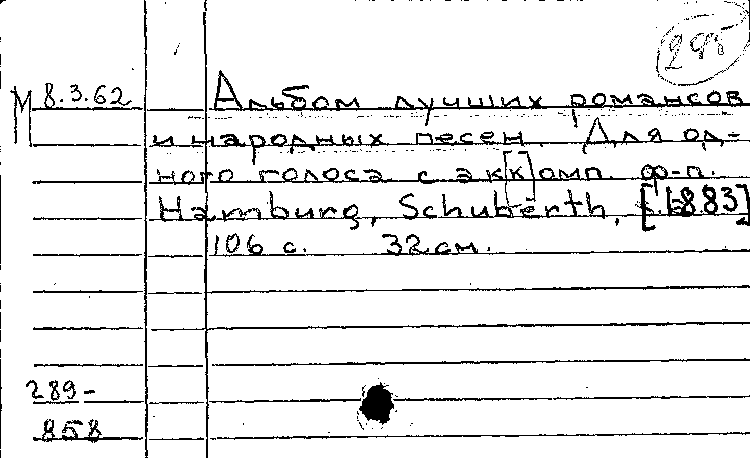 295
М 8.3.62 Альбом лучших романсов
и народных песен. Для од-
ного голоса с ак[к]омп. ф-п.
Hamburg, Schuberth, [1883]
106 с. 32 см.
289-
858